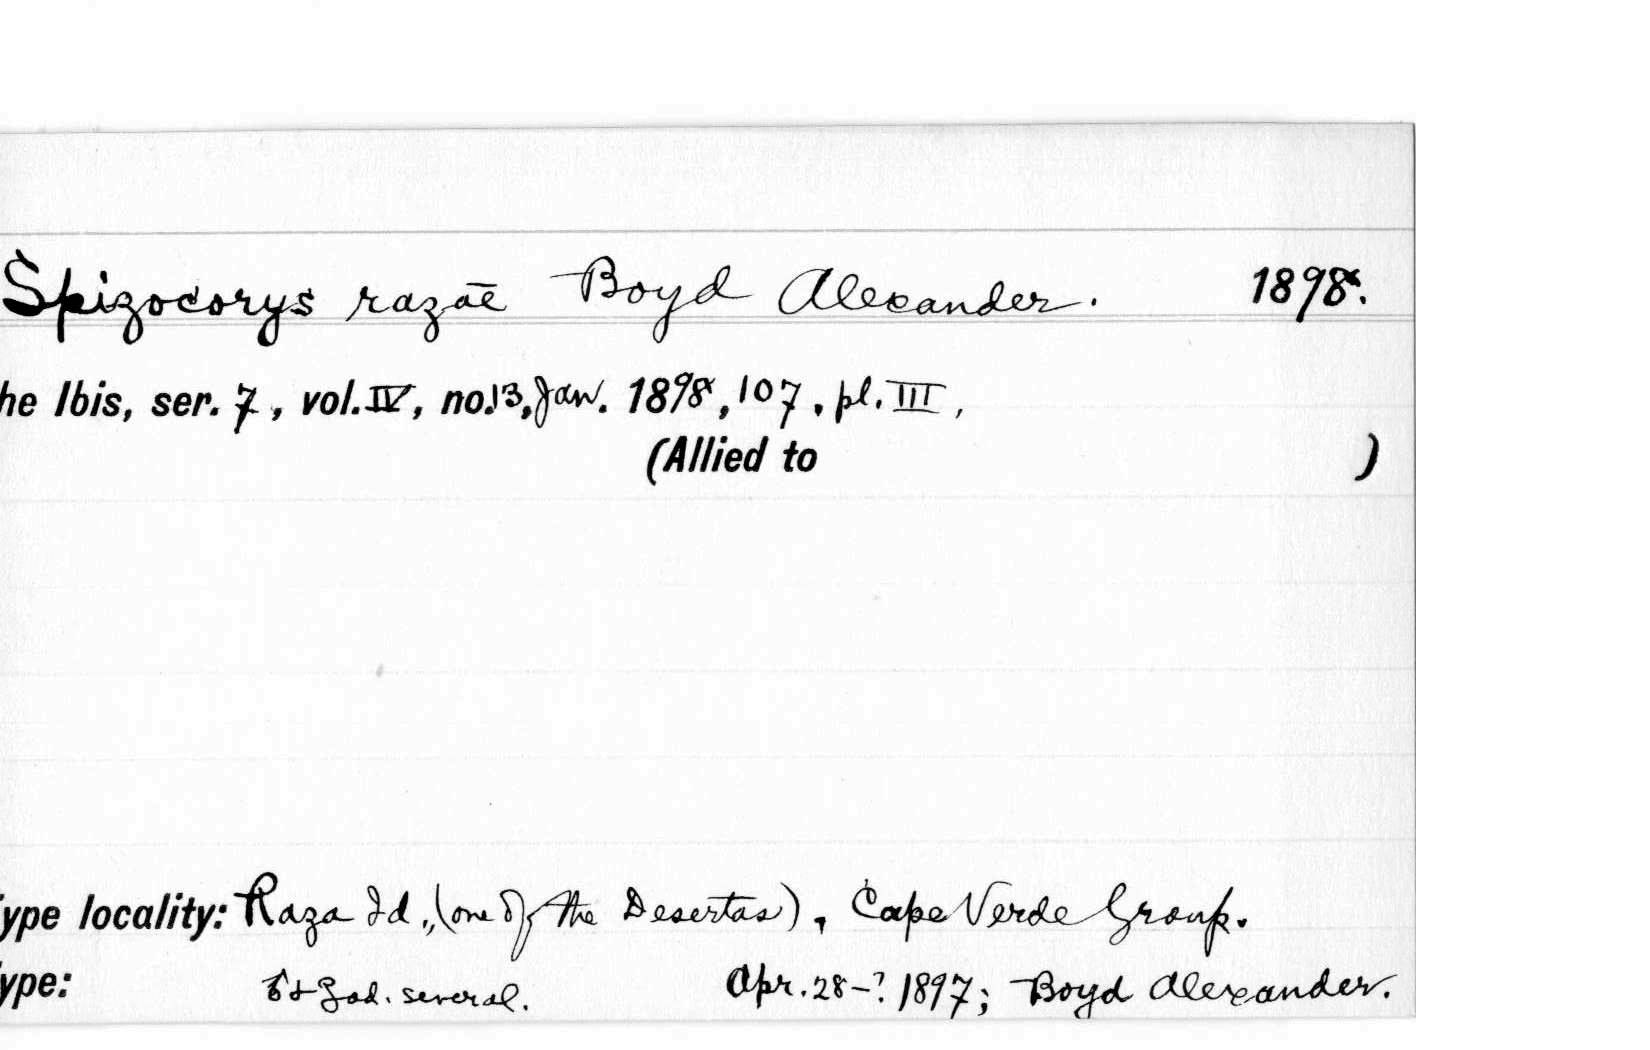 Spizocorys razae Boyd Alexander. 1898.
he Ibis, ser. 7, vol. IV, no. 13, Jan. 1898, 107, pl. III,
(Allied to )
ype locality: Raza Id., (one of the Desertas), Cape Verde Group.
ype: ♂ + ♀ ad. several. Apr. 28-? 1897; Boyd Alexander.